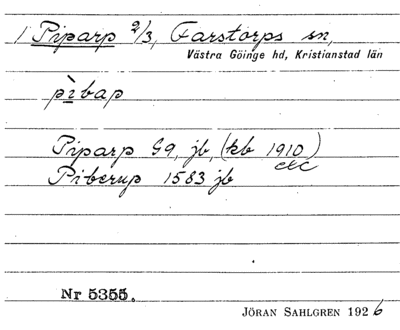 1 Piparp 2/3, Farstorps sn,
Västra Göinge hd, Kristianstad län
pìbap
Piparp G9, jb, (kb 1910)
etc
Piberup 1583 jb
Nr 5355.
JÖRAN SAHLGREN 1926